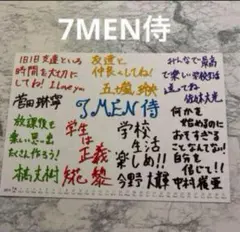 7MEN侍
1日1日友達といる
時間を大切に
してね！I love you
菅田琳寧
友達と
仲良くしてね！
五十嵐玲央
みんなで最高
で楽しい学校生活
送ってね
佐々木大光
7MEN侍
放課後も
楽しい思い出
たくさん作ろう！
本髙克樹
学生は
正義
矢花黎
学校
生活
楽しめ!!
今野大輝
何かを
始めるのに
おそすぎる
ことなんてない！
自分を
信じて!!
中村嶺亜